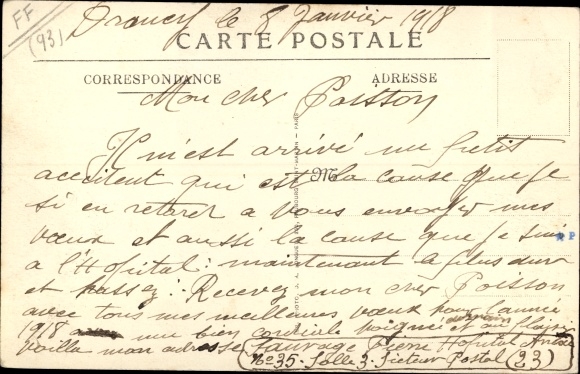 FF
(93)
Drancy le 8 Janvier 1918
CARTE POSTALE
CORRESPONDANCE
ADRESSE
Mon cher Poisson
Il m'est arrivé un petit
accident qui est la cause que je
si en retard a vous envoyer mes
vœux et aussi la cause que je suis
a l'Hopital : maintenant le plus dur
et passez : Recevez mon cher Poisson
avec tous mes meilleures vœux pour l'année
1918 une bien cordiale poignée et au plaisir
voilla mon adresse Sauvage Pierre Hopital
No 35 Salle 3 Secteur Postal (23)
M